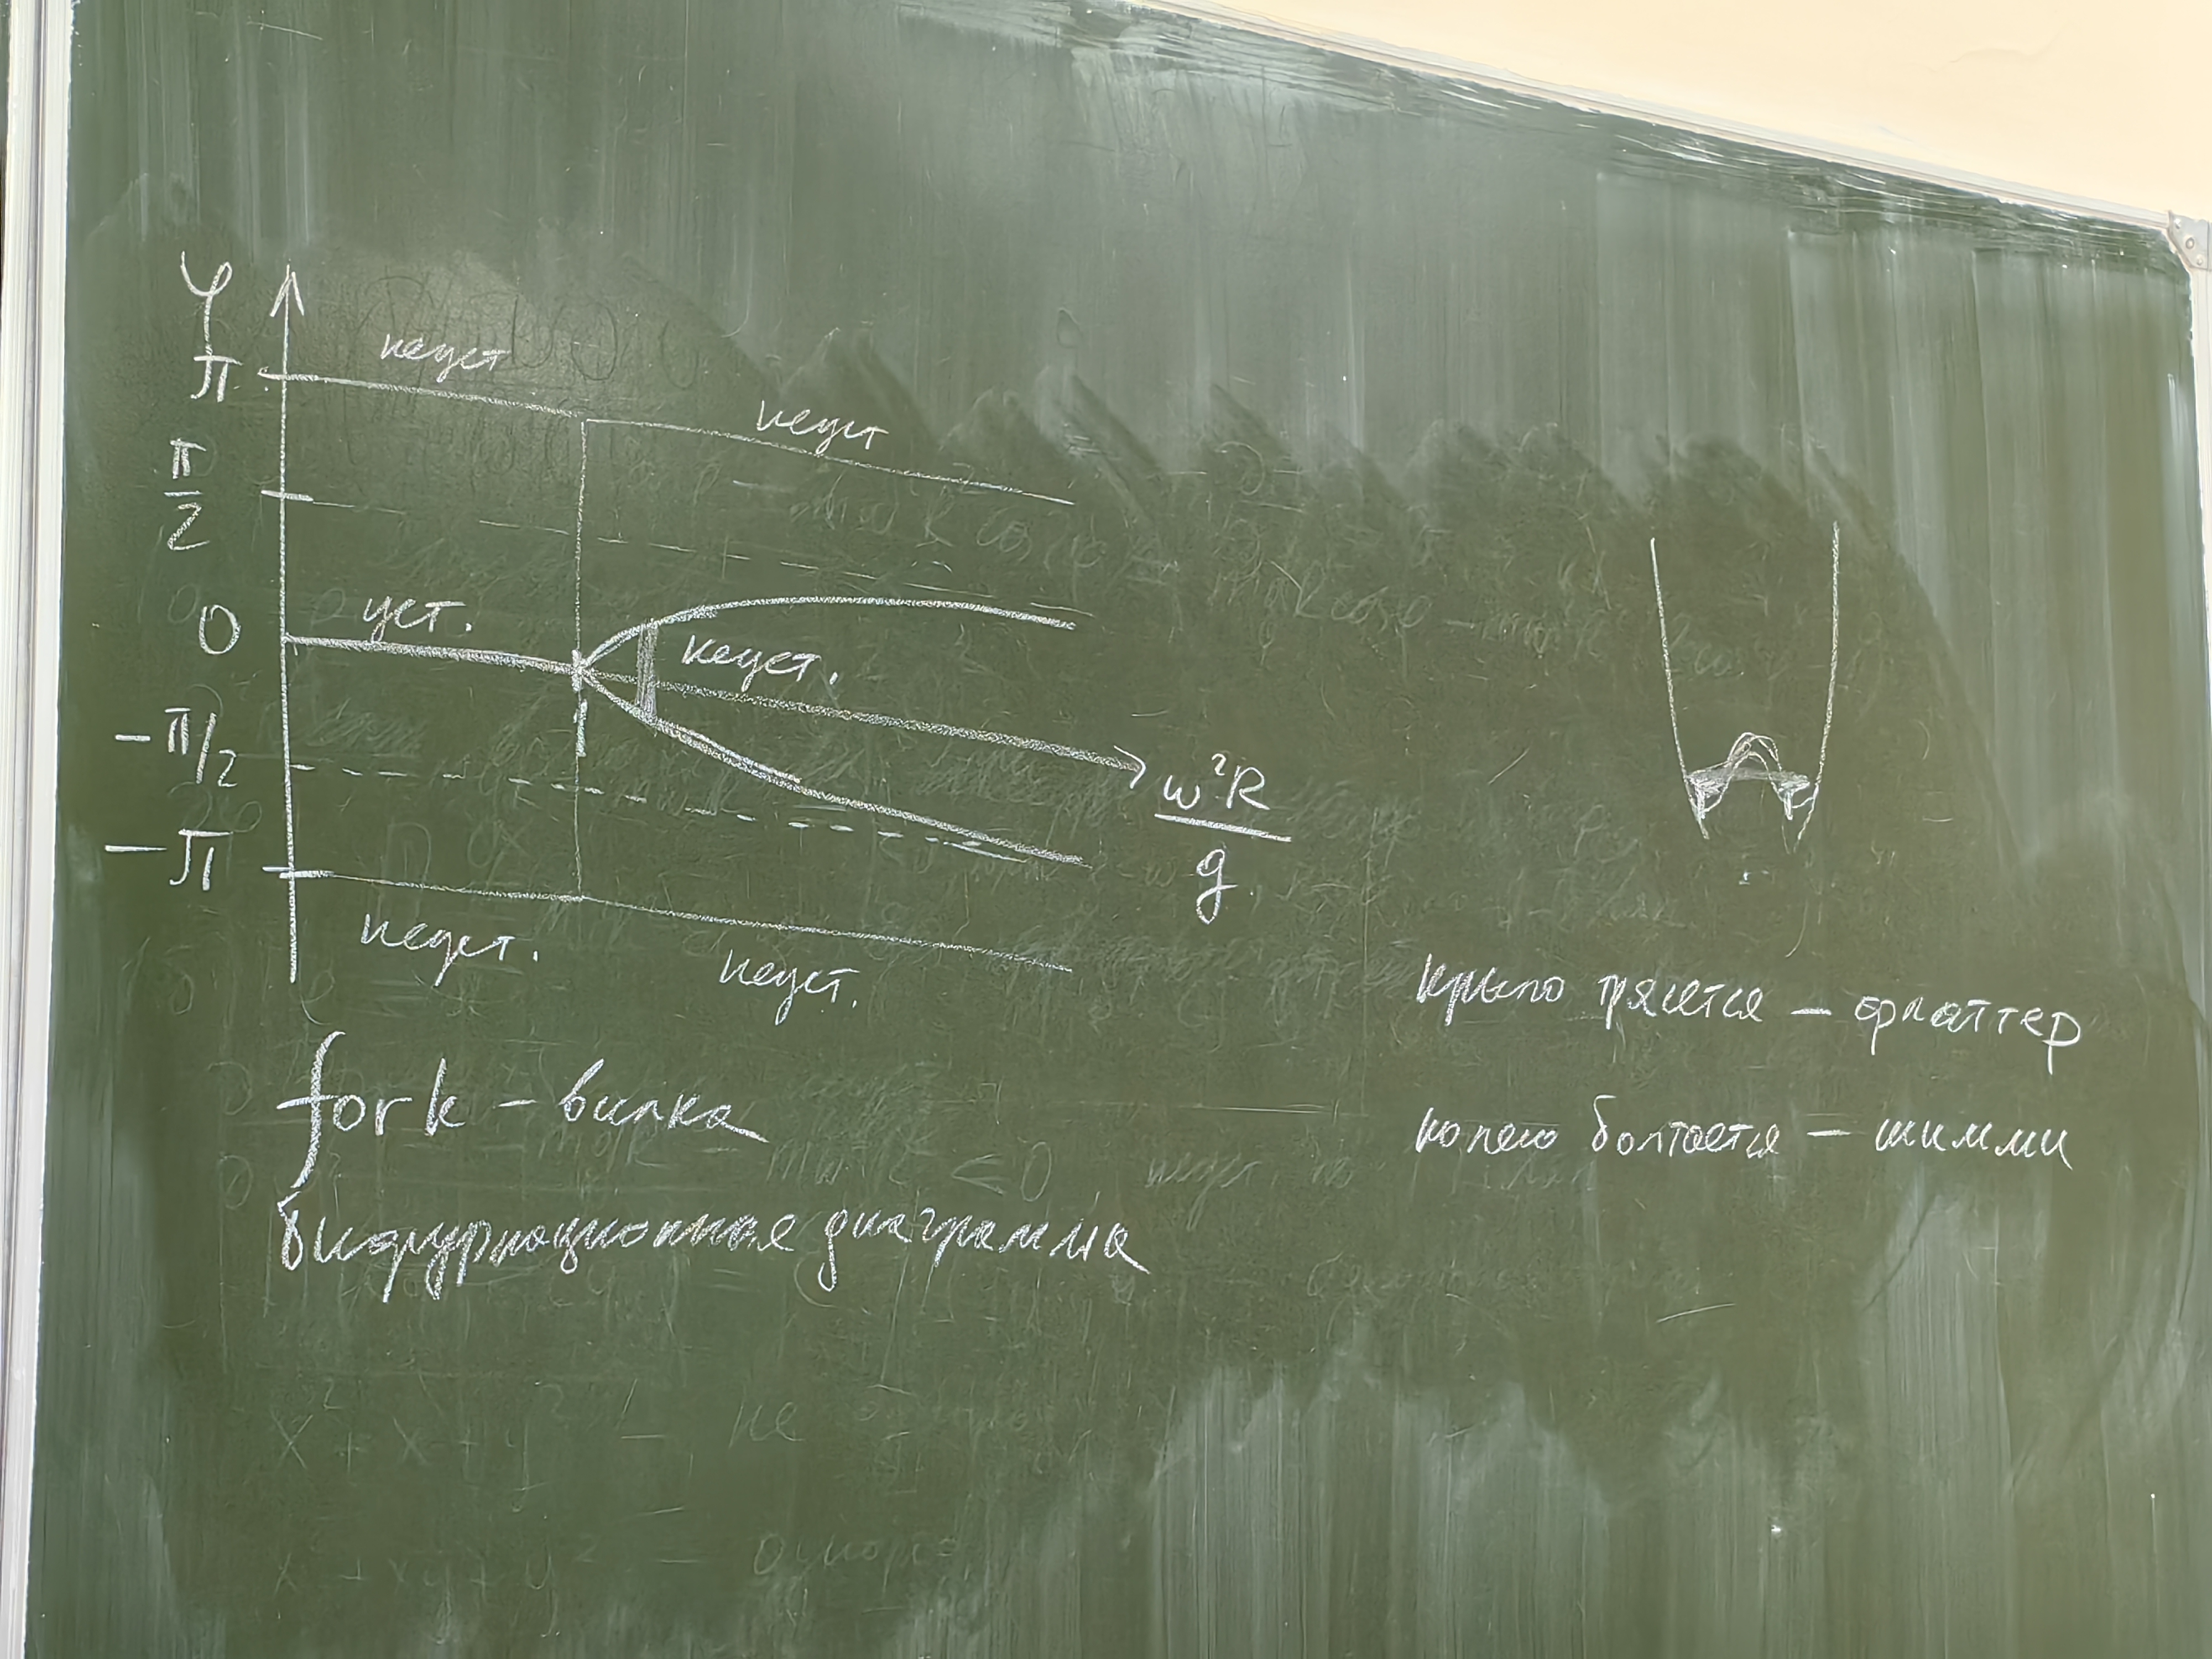 φ
π
неуст
неуст
π/2
0
уст.
неуст.
-π/2
ω²R/g
-π
неуст.
неуст.
fork - вилка
бифуркационная диаграмма
крыло трясется - флаттер
колесо болтается - шимми
x² + x + y² - не
x² + xy + y² -